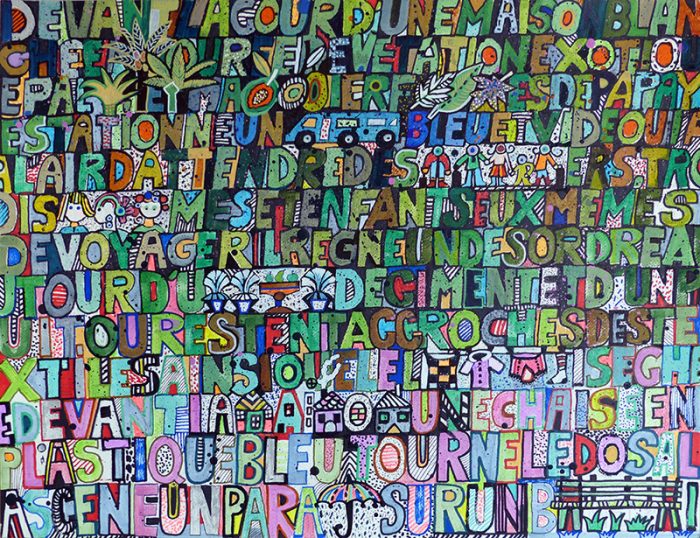 DEVANT LA COUR D'UNE MAISON BLAN
CHE VETATION EXOTIQ
EPA ES DE PAPAY
E STATIONNE UN BLEU ET VIDE QUI
A LAIR DATTENDRE DES ERS, TR
OIS MES ET ENFANTS EUX MEMES
DE VOYAGER IL REGNE UN DESORDRE A
UTOUR DU DE CIMENT ET D'UN H
RESTENT ACCROCHES DES TE
XTILES AINSI
E DEVANT LA UNE CHAISE EN
PLASTIQUE BLEU TOURNE LE DOS A L
A SCENE UN PARA SUR UN B